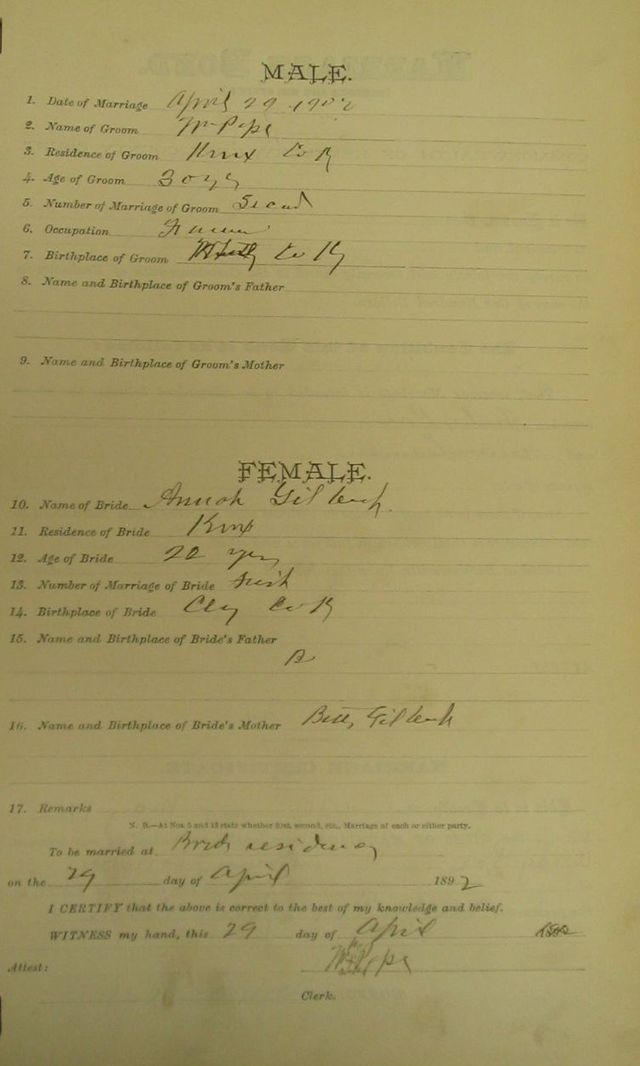 MALE.
1. Date of Marriage April 29 1902
2. Name of Groom Wm Pope
3. Residence of Groom Knox Co Ky
4. Age of Groom 30 yrs
5. Number of Marriage of Groom Second
6. Occupation Farmer
7. Birthplace of Groom Co Ky
8. Name and Birthplace of Groom's Father
9. Name and Birthplace of Groom's Mother
FEMALE.
10. Name of Bride Gilbert
11. Residence of Bride Knox
12. Age of Bride 22 yrs
13. Number of Marriage of Bride First
14. Birthplace of Bride Clay Co Ky
15. Name and Birthplace of Bride's Father
16. Name and Birthplace of Bride's Mother Betty Gilbert
17. Remarks
N. B.—At Nos. 5 and 13 state whether first, second, etc., Marriage of each or either party.
To be married at Brides residence
on the 29 day of April 1892
I CERTIFY that the above is correct to the best of my knowledge and belief.
WITNESS my hand, this 29 day of April
Wm Pope
Attest:
Clerk.